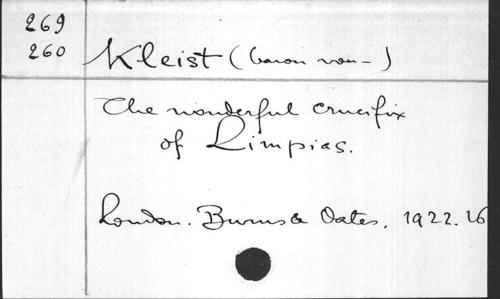 269
260
Kleist (baron von-)
The wonderful crucifix
of Limpias.
London. Burns & Oates. 1922. 16